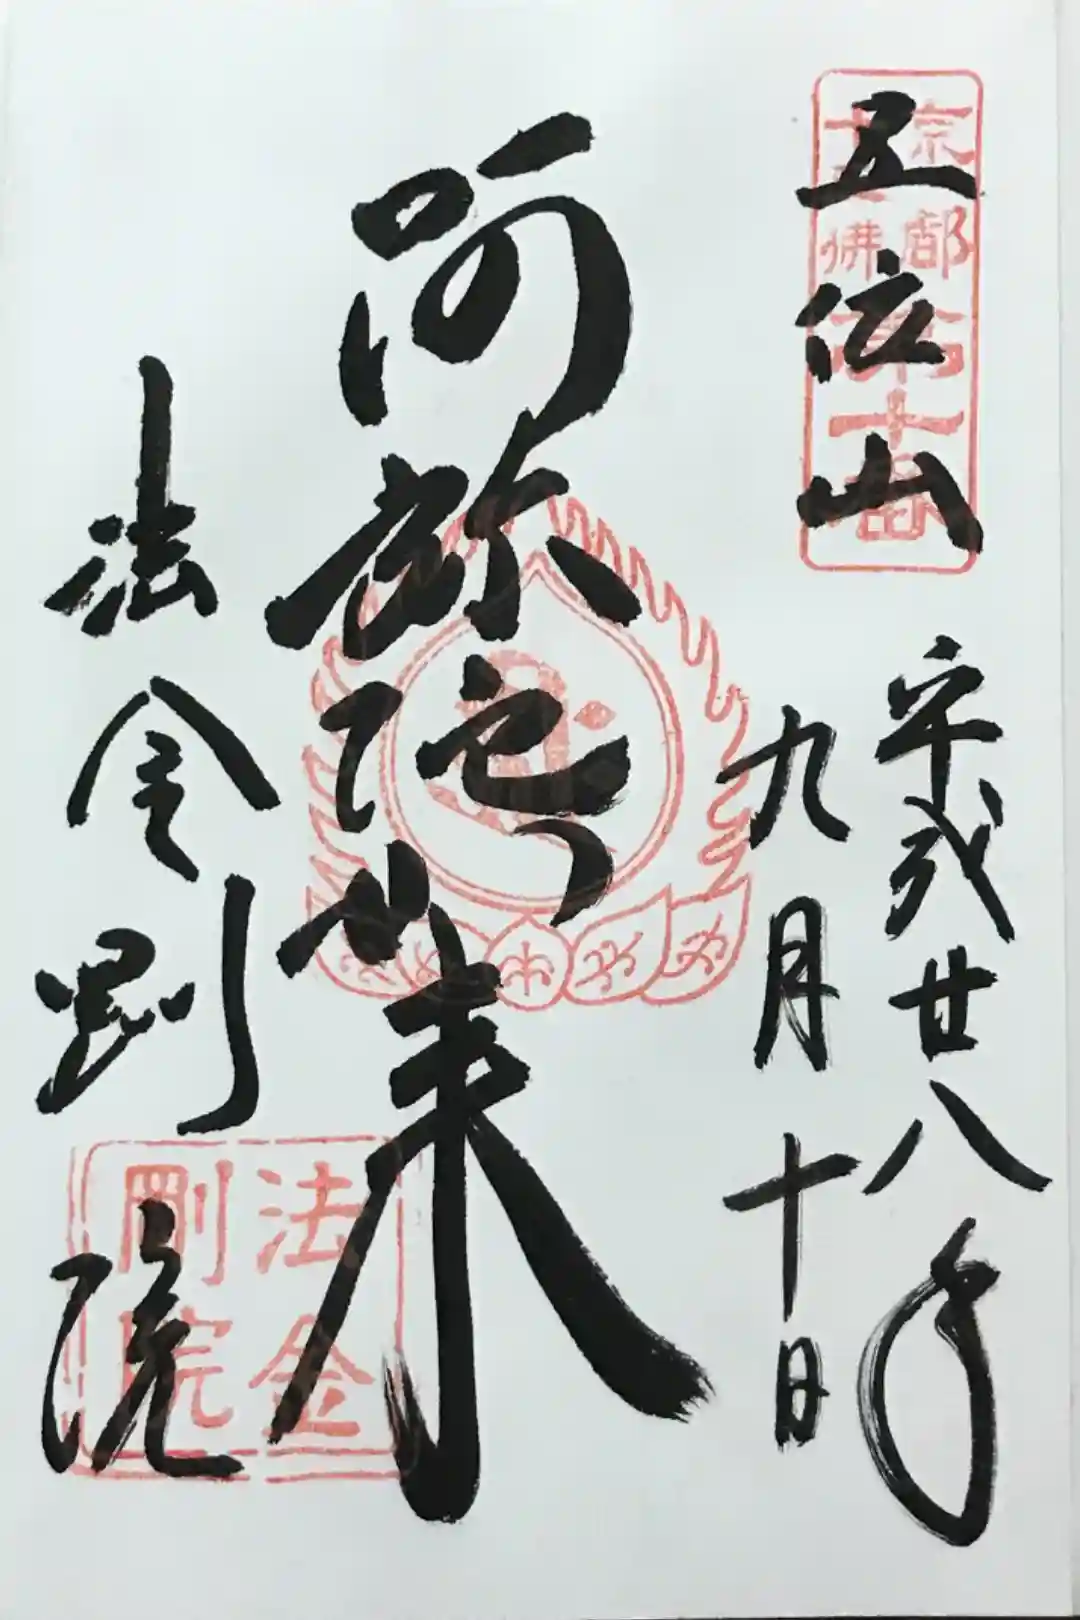 五位山
京都
十三佛
第十番
平成廿八年
九月十日
阿弥陀如来
法金剛院
法金
剛院